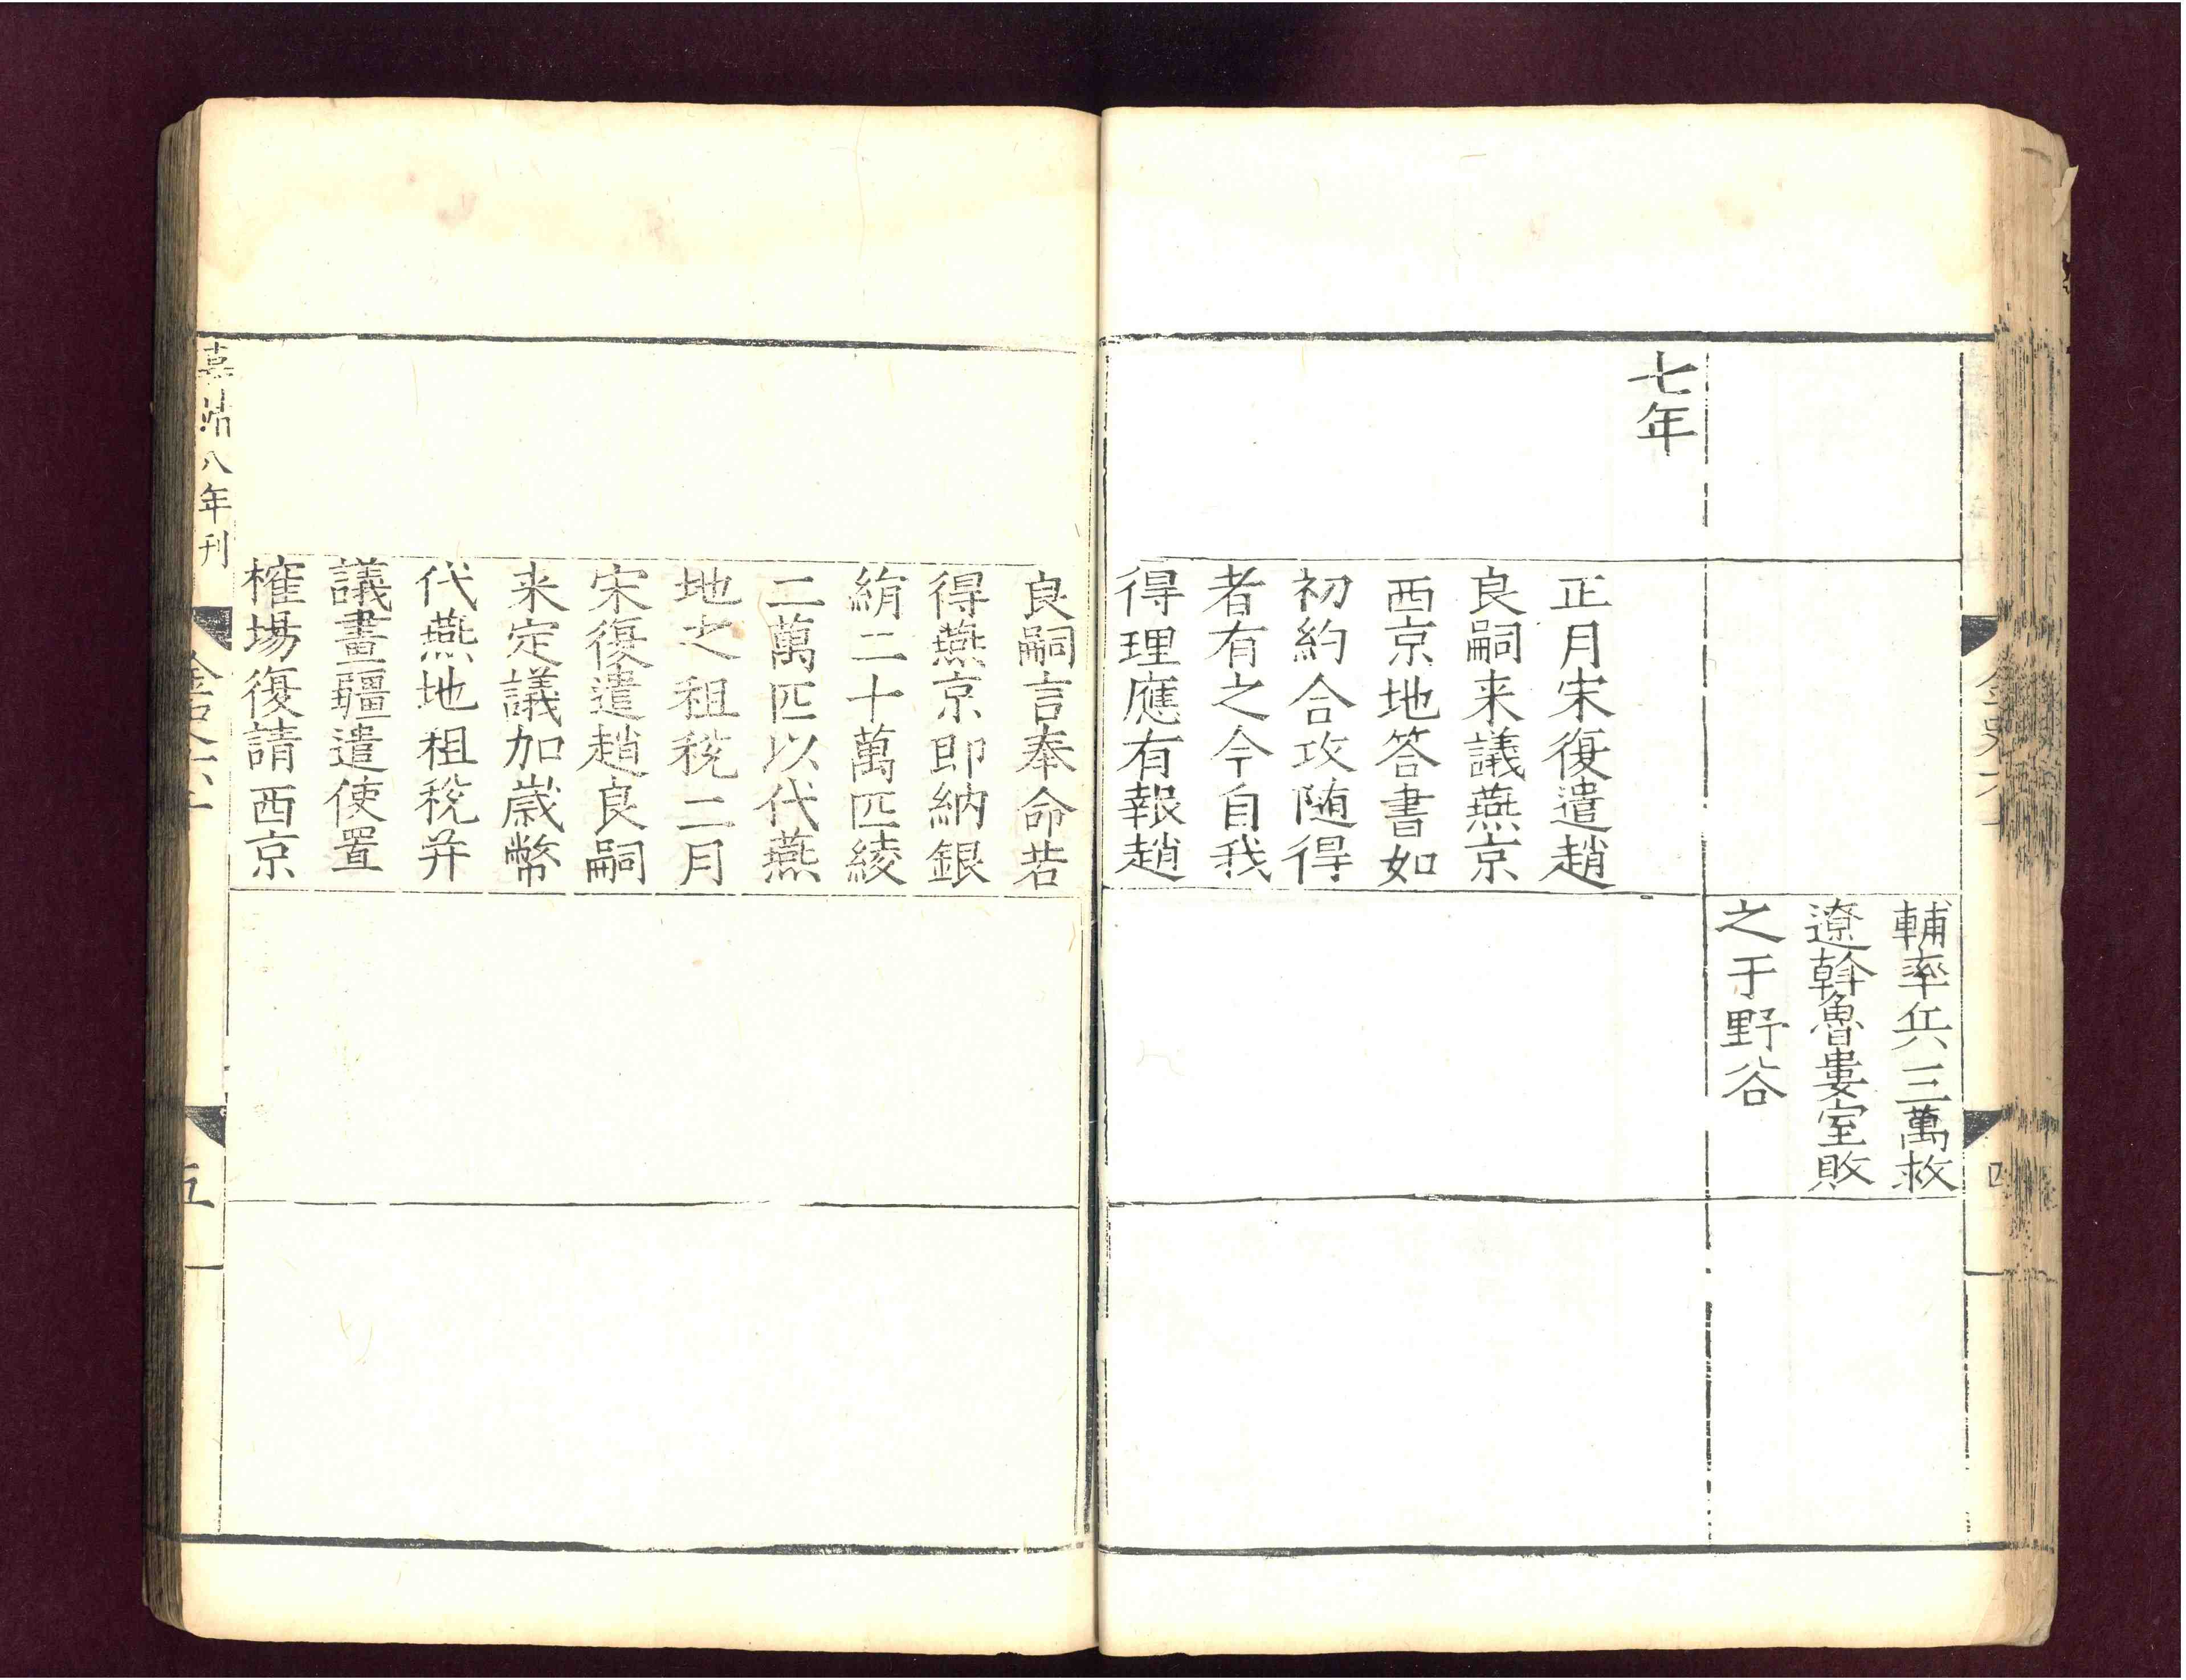 輔率兵三萬救
遼斡魯婁室敗
之于野谷
七年
正月宋復遣趙
良嗣来議燕京
西京地答書如
初約合攻随得
者有之今自我
得理應有報趙
良嗣言奉命若
得燕京即納銀
絹二十萬匹綾
二萬匹以代燕
地之租稅二月
宋復遣趙良嗣
来定議加嵗幣
代燕地租稅并
議畫疆遣使置
榷場復請西京
嘉靖八年刊
金史六十
五